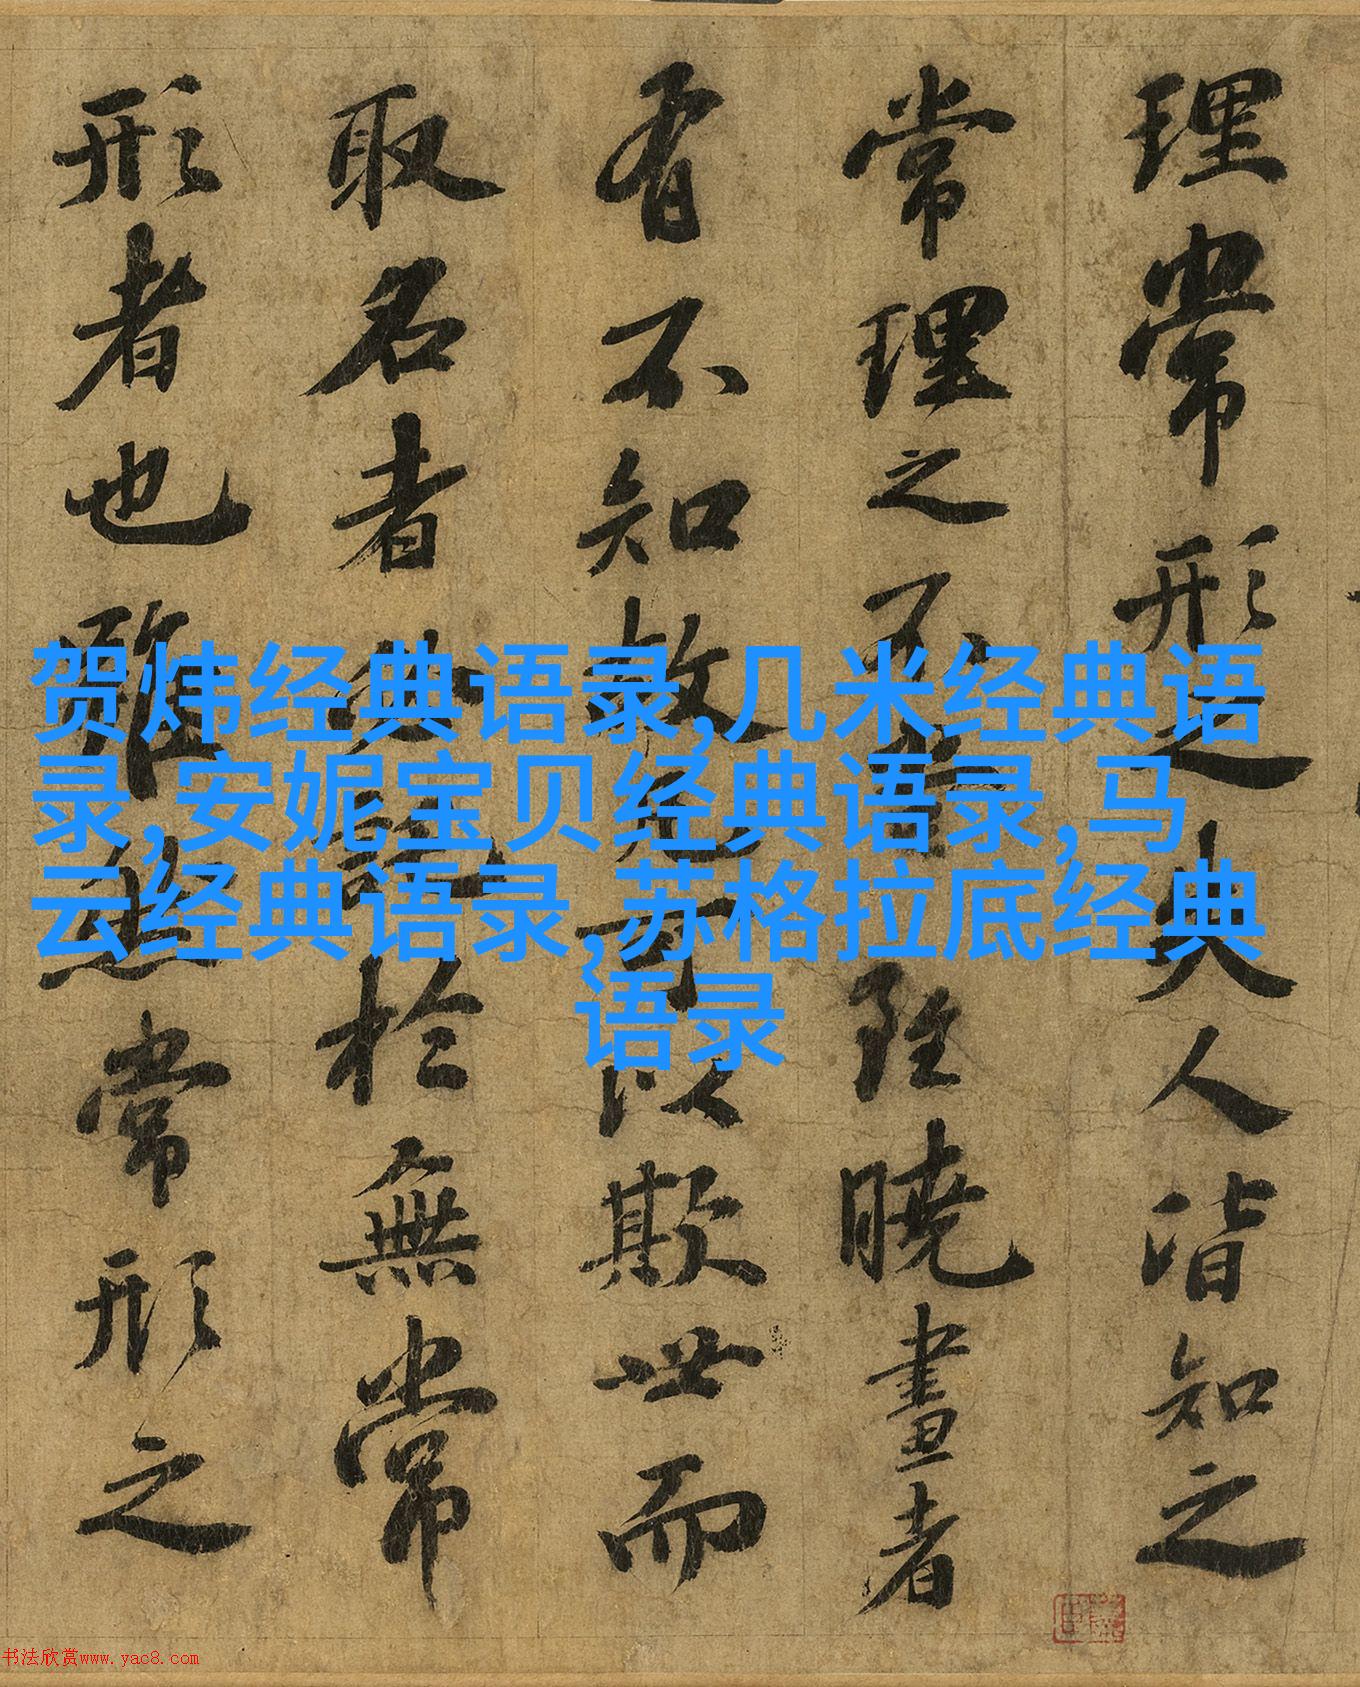 理常形之失人皆知之
常理之不雖曉畫者
有不知故凡可以欺世而
取名者必託於無常
形者也雖然常形之
贺炜经典语录,几米经典语
录,安妮宝贝经典语录,马
云经典语录,苏格拉底经典
语录
书法欣赏www.yac8.com